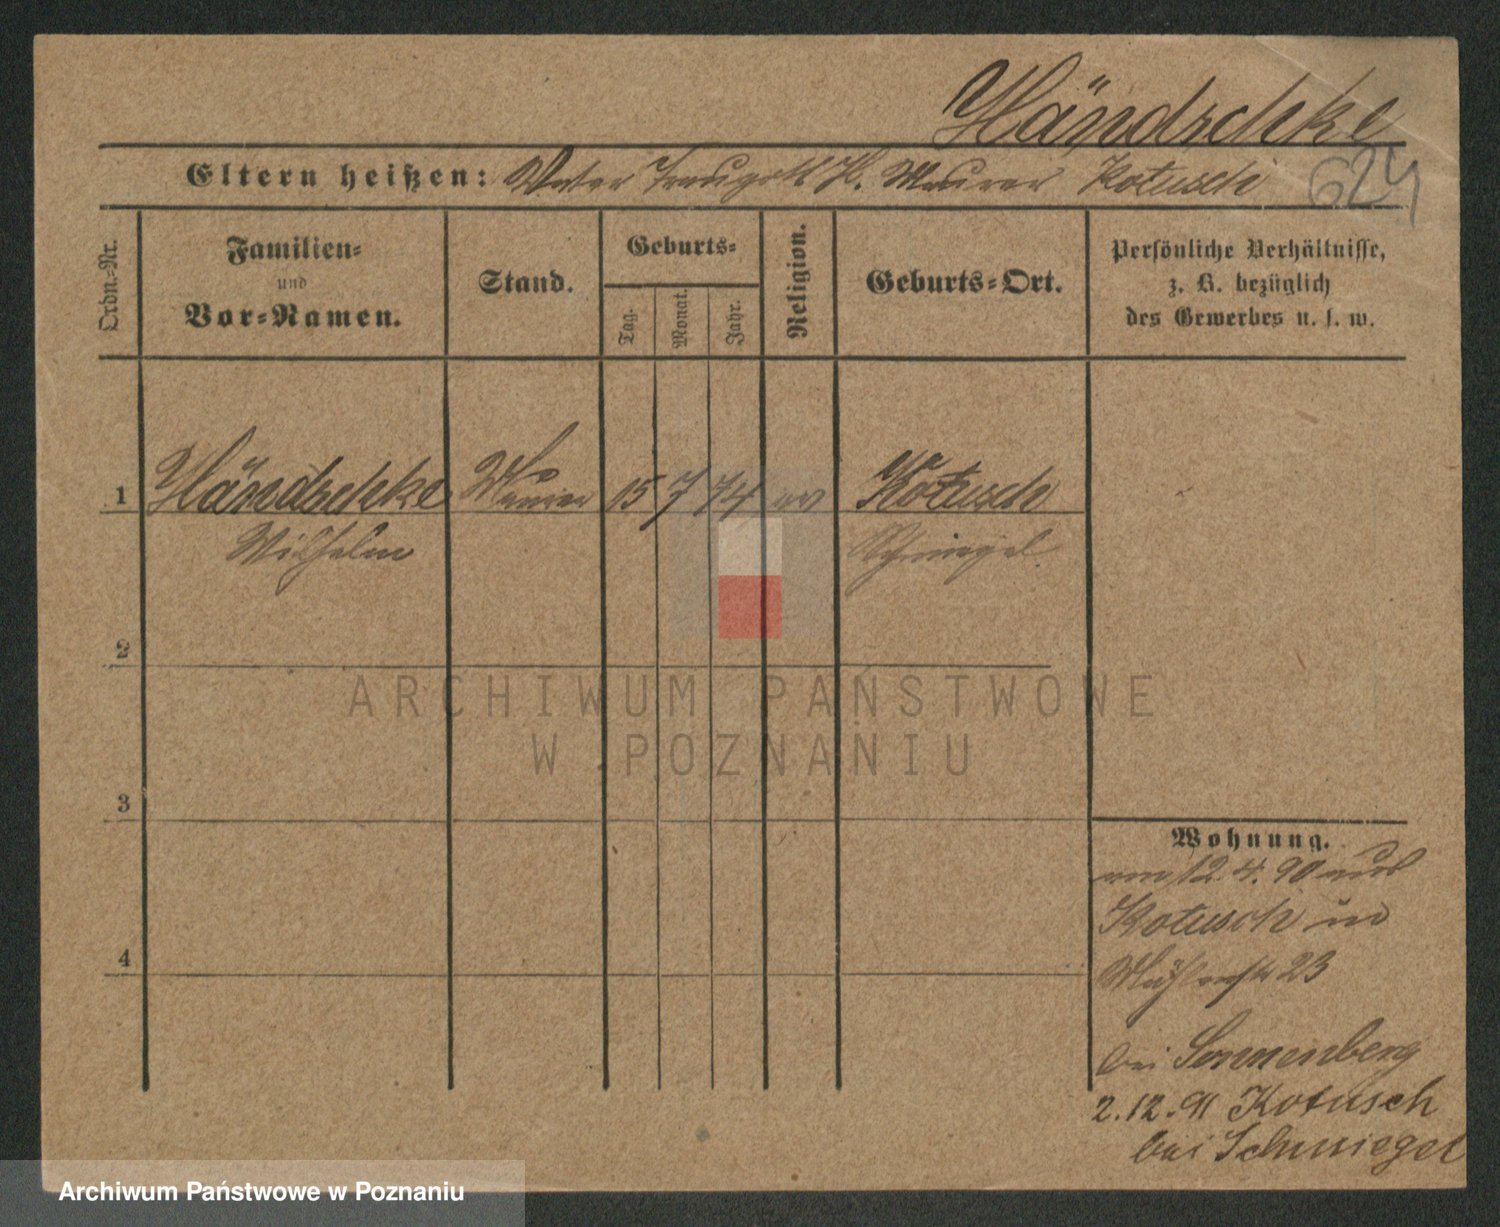 Händschke
Eltern heißen: Vater Traugott H. Maurer Kotusch
624
Ordn.-Nr.
Familien-
und
Vor-Namen.
Stand.
Geburts-
Tag.
Monat.
Jahr.
Religion.
Geburts-Ort.
Persönliche Verhältnisse,
z. B. bezüglich
des Gewerbes u. s. w.
1 Händschke Maurer 15 7 74 ev Kotusch
Wilhelm Schmiegel
2
ARCHIWUM PAŃSTWOWE
W POZNANIU
3
Wohnung.
12.4.90 aus
Kotusch in
Mühlenstr 23
4
bei Sonnenberg
2.12.91 Kotusch
bei Schmiegel
Archiwum Państwowe w Poznaniu